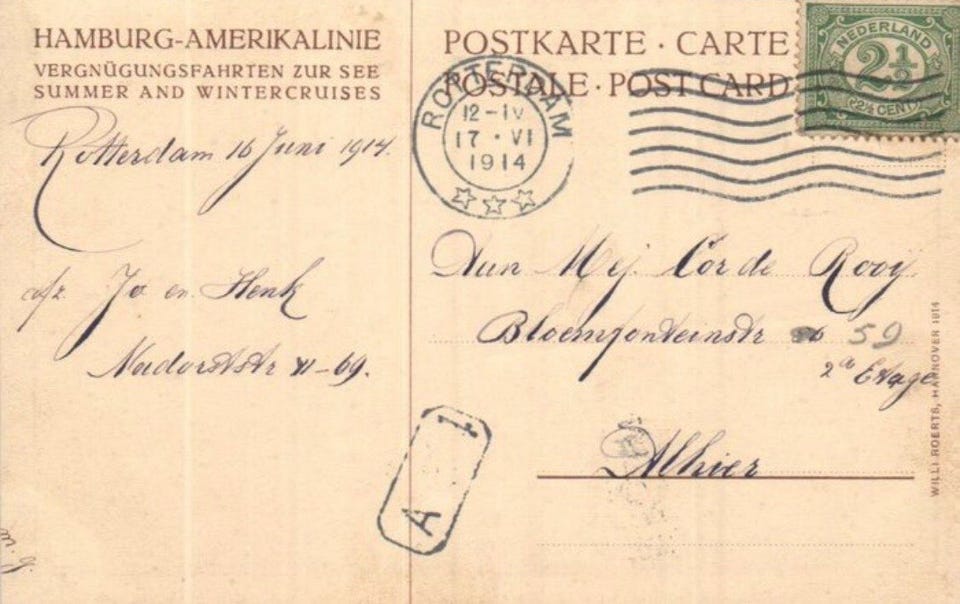 HAMBURG-AMERIKALINIE
VERGNÜGUNGSFAHRTEN ZUR SEE
SUMMER AND WINTERCRUISES
POSTKARTE · CARTE
POSTALE · POST CARD
NEDERLAND
2½
(2½ CENT)
ROTTERDAM
12-IV
17·VI
1914
Rotterdam 16 Juni 1914.
afz Jo en Henk
69.
Aan Mej. Cor de Rooy.
Bloemfonteinstr 59
2de Etage
Alhier
A 1
WILLI ROERTS, HANNOVER 1914